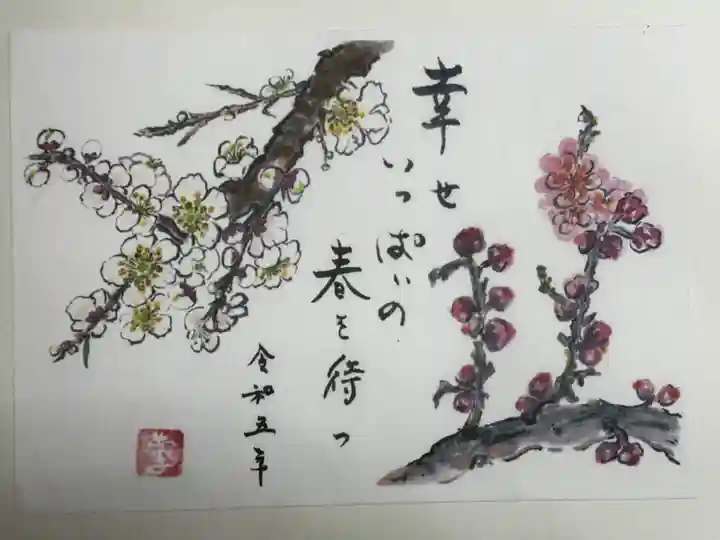 幸せ
いっぱいの
春を待つ
令和五年